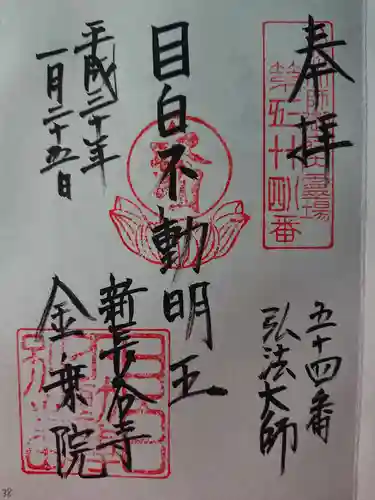 奉拝
第五十四番
五十四番
弘法大師
目白不動明王
新長谷寺
金乗院
平成三十年
一月二十五日
38